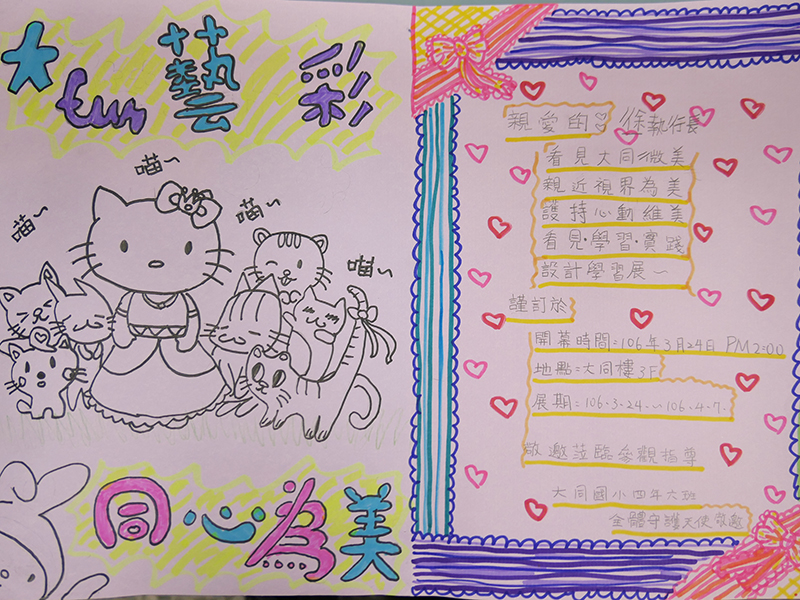 大 fun 藝 彩
喵~
喵~
喵~
喵~
同心為美
親愛的♡徐執行長
看見大同微美
親近視界為美
護持心動維美
看見·學習·實踐
設計學習展~
謹訂於
開幕時間:106年3月24日 PM2:00
地點:大同樓3F
展期:106.3.24.~106.4.7.
敬邀蒞臨參觀指導
大同國小四年六班
全體守護天使敬邀